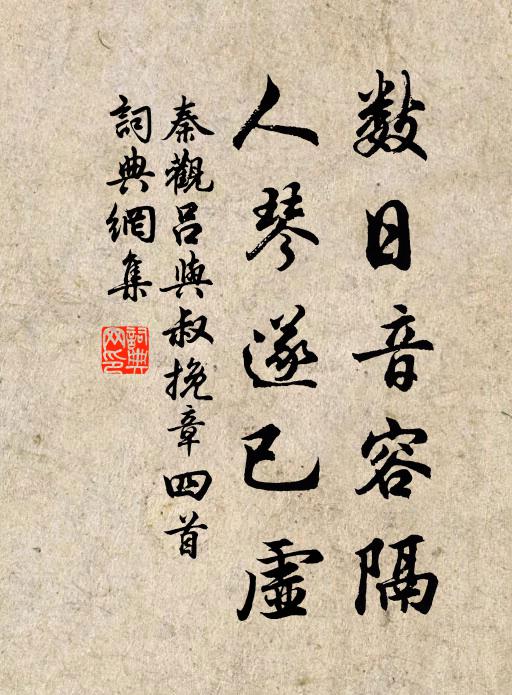 数日音容隔
人琴遂已虛
秦觀呂與叔挽章四首
詞典網集
詞典網印